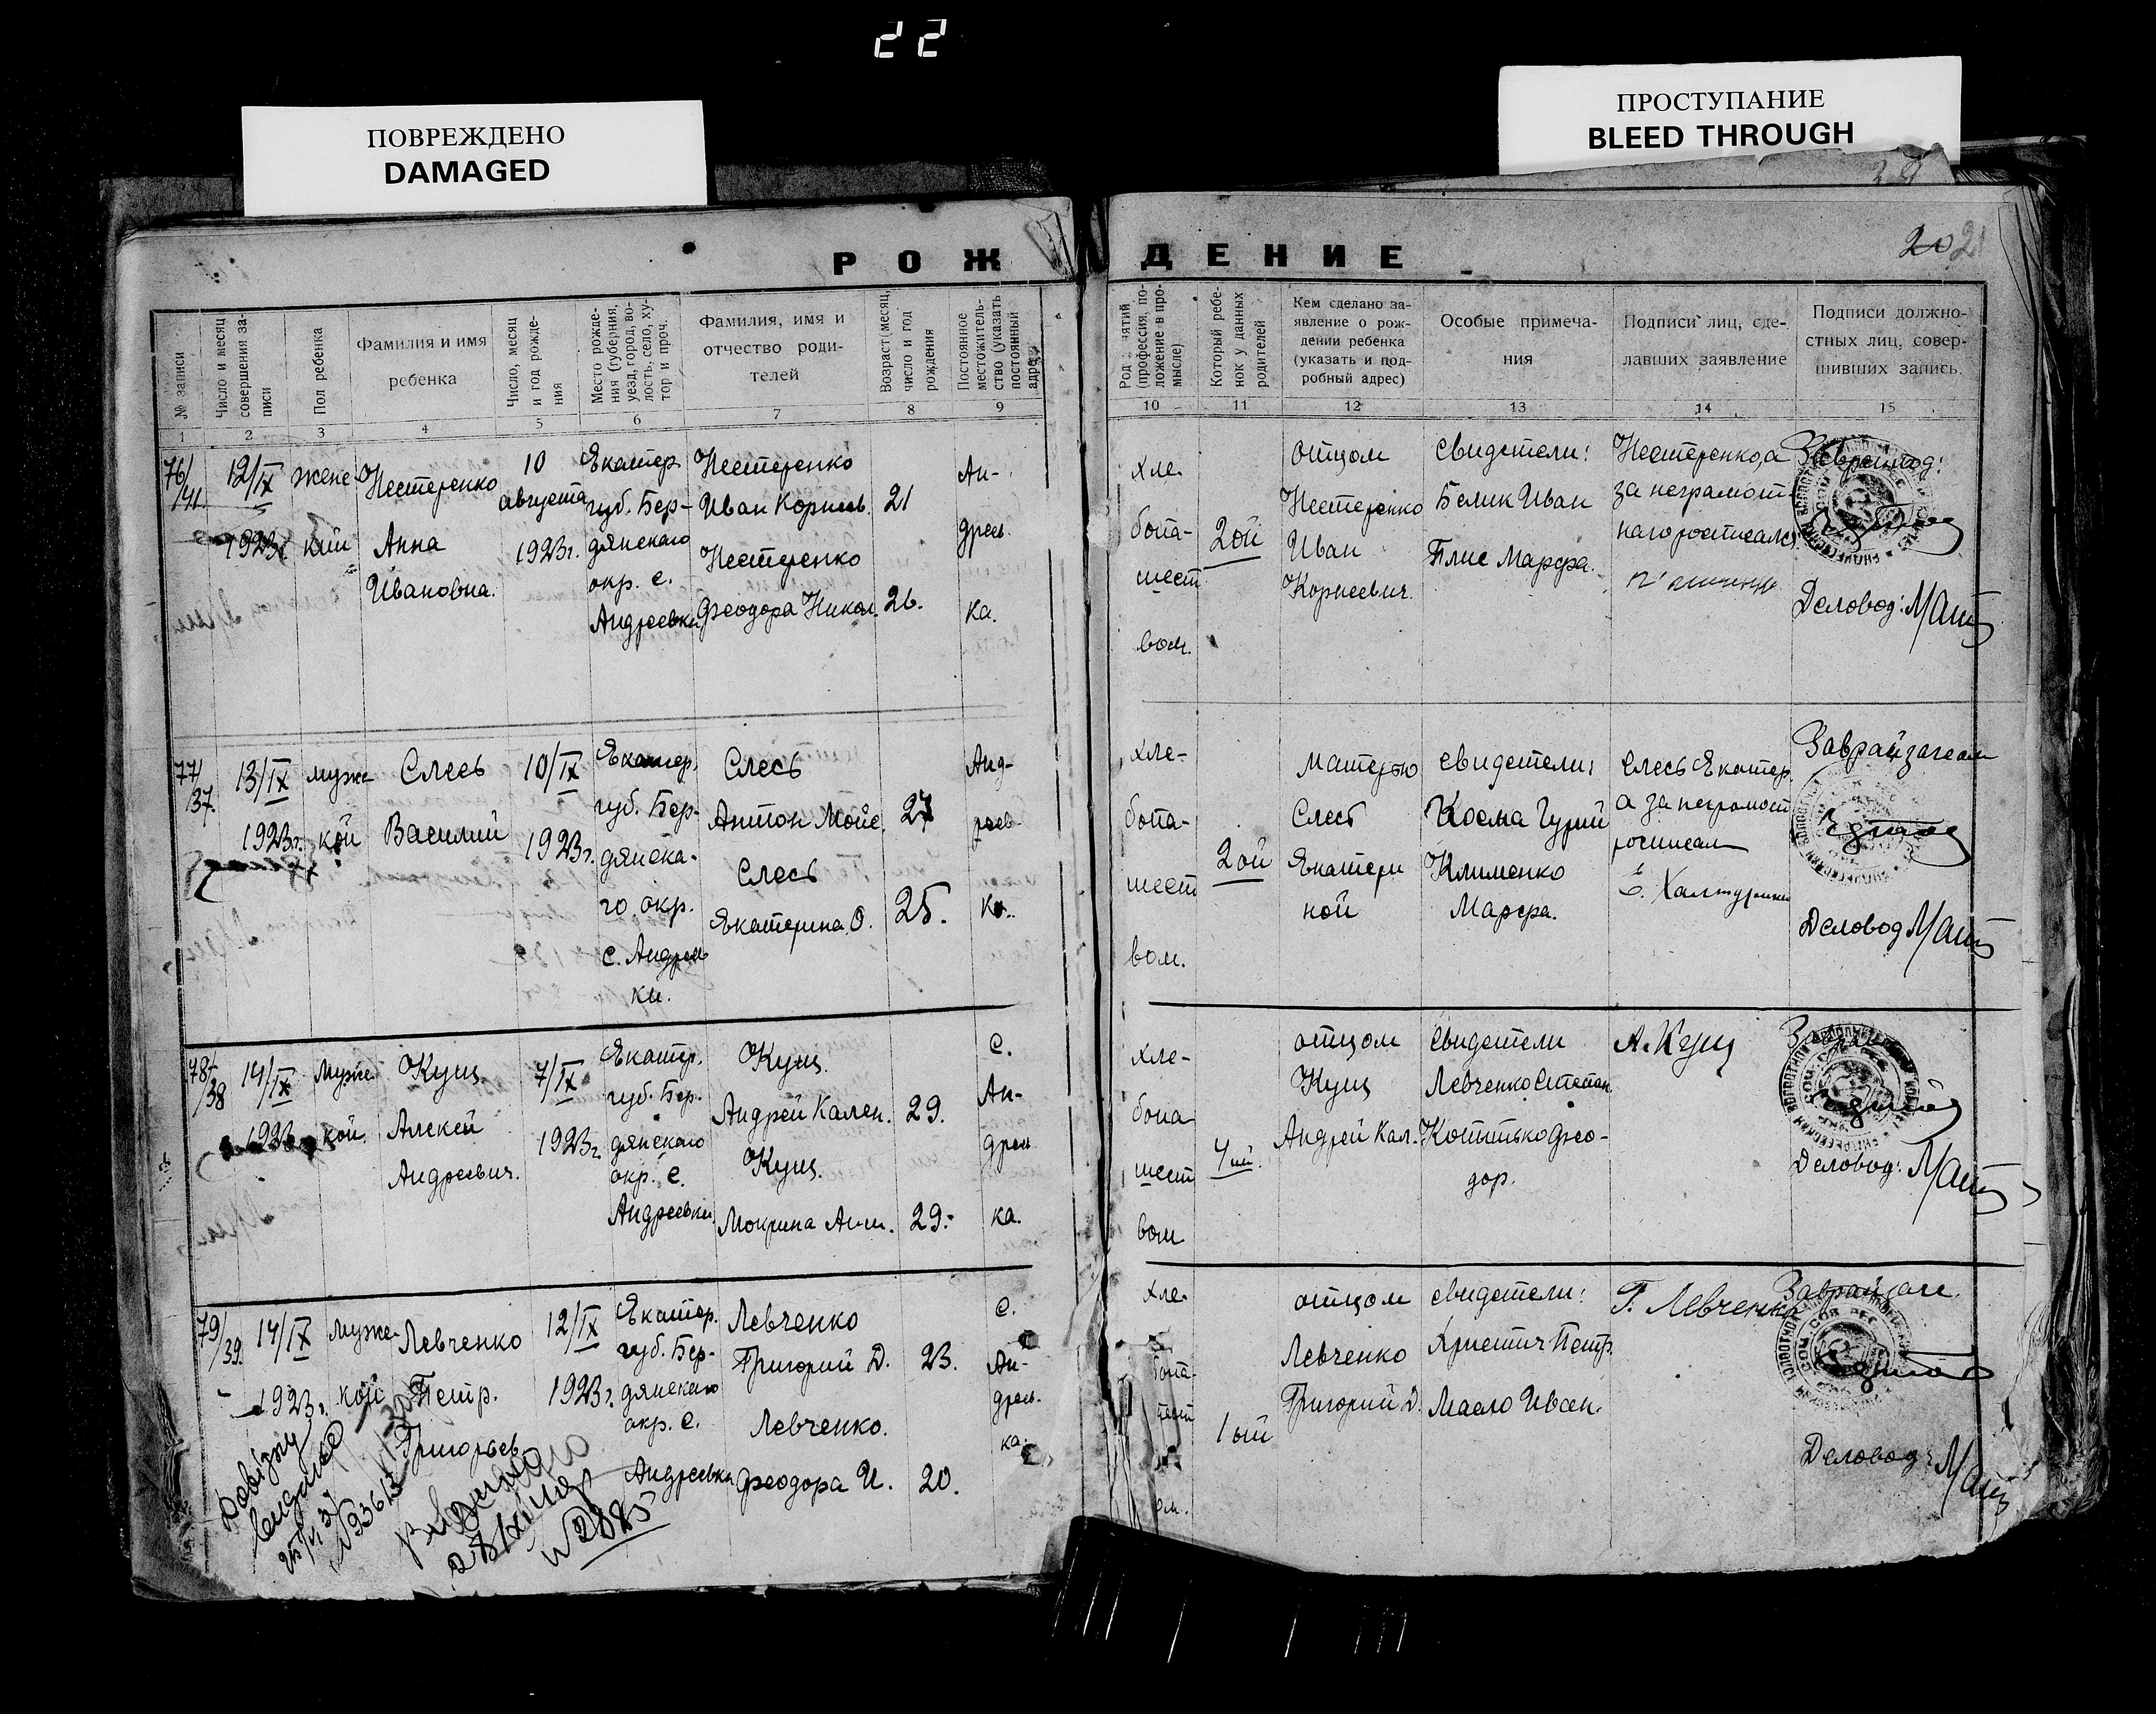 22
ПОВРЕЖДЕНО
DAMAGED
ПРОСТУПАНИЕ
BLEED THROUGH
РОЖДЕНИЕ
20 21
№ записи
Число и месяц совершения записи
Пол ребенка
Фамилия и имя
ребенка
Число, месяц
и год рожде-
ния
Место рожде-
ния (губерния,
уезд, город, во-
лость, село, ху-
тор и проч.
Фамилия, имя и
отчество роди-
телей
Возраст месяц,
число и год
рождения
Постоянное
местожитель-
ство (указать
постоянный
адрес
Род занятий
(профессия, по-
ложение в про-
мысле)
Который ребе-
нок у данных
родителей
Кем сделано за-
явление о рож-
дении ребенка
(указать и под-
робный адрес)
Особые примеча-
ния
Подписи лиц, сде-
лавших заявление
Подписи должно-
стных лиц, совер-
шивших запись.
1 2 3 4 5 6 7 8 9 10 11 12 13 14 15
76/41.
12/IX
1923г.
женс
кий
Нестеренко
Анна
Ивановна.
10
августа
1923г.
Екатер
губ. Бер-
дянскаго
окр. с.
Андреевки
Нестеренко
Иван Корнеев.
Нестеренко
Феодора Никол.
21
26.
Ан-
дреев.
ка.
хле-
бопа-
шест
вом.
2ой
отцом
Нестеренко
Иван
Корнеевич.
свидетели:
Белик Иван
Плис Марфа.
Нестеренко, а
за неграмот-
наго росписался
Деловод:
77/37.
13/IX
1923г.
муже
кой
Слесь
Василий
10/IX
1923г.
Екатер.
губ. Бер-
дянска-
го окр.
с. Андреев
ки.
Слесь
Антон Мойс.
Слесь
Екатерина О.
27
25.
Анд-
реев-
ка.
хле-
бопа-
шест
вом.
2ой
матерью
Слесь
Екатери
ной
свидетели:
Косма Гурий
Клименко
Марфа.
Слесь Екатер.
а за неграмот
росписал
Заврайзагсом
Деловод
78/38
14/IX
1923г.
муже
кой.
Кущ
Алексей
Андреевич.
7/IX
1923г.
Екатер.
губ. Бер-
дянскаго
окр. с.
Андреевки
Кущ.
Андрей Кален.
Кущ.
Мокрина
29.
29.
с.
Ан-
дреев
ка.
хле-
бопа
шест
вом
4ий.
отцом
Кущ
Андрей Кал.
Свидетели
Левченко Степан
Котитько Фео-
дор.
А. Кущ
Деловод:
79/39.
14/IX
1923г.
муже-
кой
Левченко
Петр.
Григорьев
12/IX
1923г.
Екатер.
губ. Бер-
дянскаго
окр. с.
Андреевки
Левченко
Григорий Д.
Левченко.
Феодора И.
23.
20.
с.
Ан-
дреев-
ка.
хле-
бопа-
шест
ом.
1ый
отцом
Левченко
Григорий Д.
свидетели:
Христич Петр.
Масло Иван.
Г. Левченко
Заврайзагс.
Деловод: